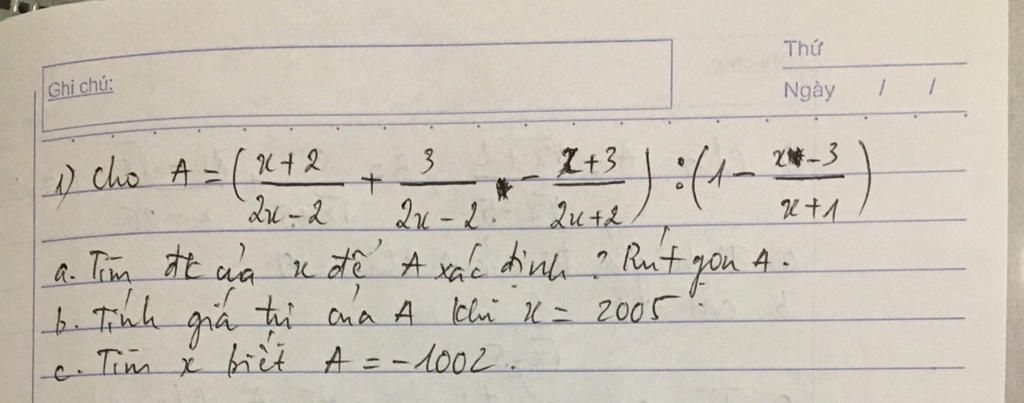 Thứ
Ghi chú:
Ngày / /
1) Cho A = ( \frac{x+2}{2x-2} + \frac{3}{2x-2} - \frac{x+3}{2x+2} ) : ( 1 - \frac{x-3}{x+1} )
a. Tìm đk của x để A xác định ? Rút gọn A.
b. Tính giá trị của A khi x = 2005
c. Tìm x biết A = -1002.